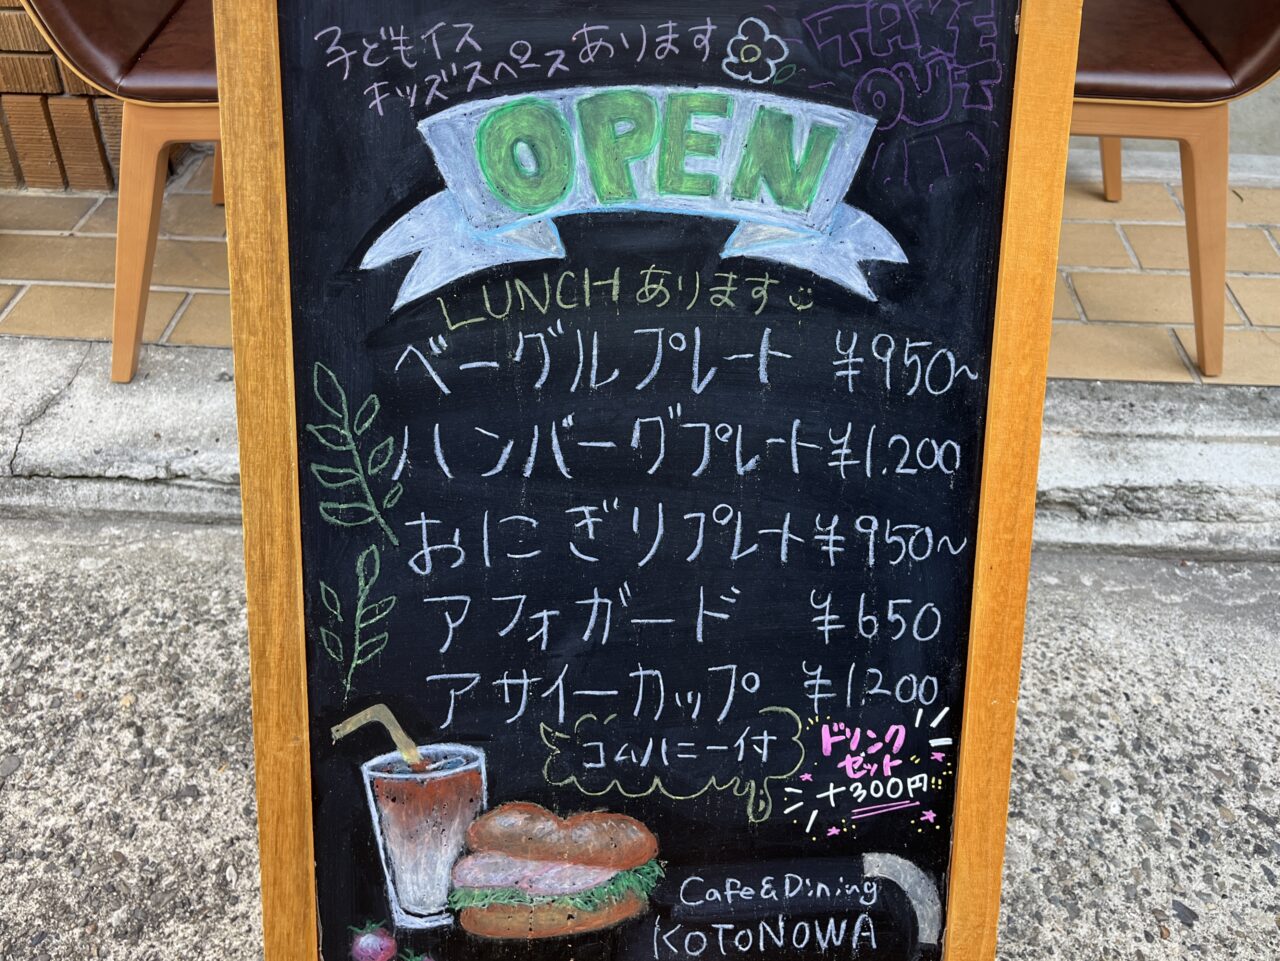 子どもイス
キッズスペースあります
TAKE
OUT
OPEN
LUNCHあります
ベーグルプレート ¥950~
ハンバーグプレート ¥1.200
おにぎりプレート ¥950~
アフォガード ¥650
アサイーカップ ¥1.200
コムハニー付
ドリンク
セット
+300円
Cafe&Dining
KOTONOWA